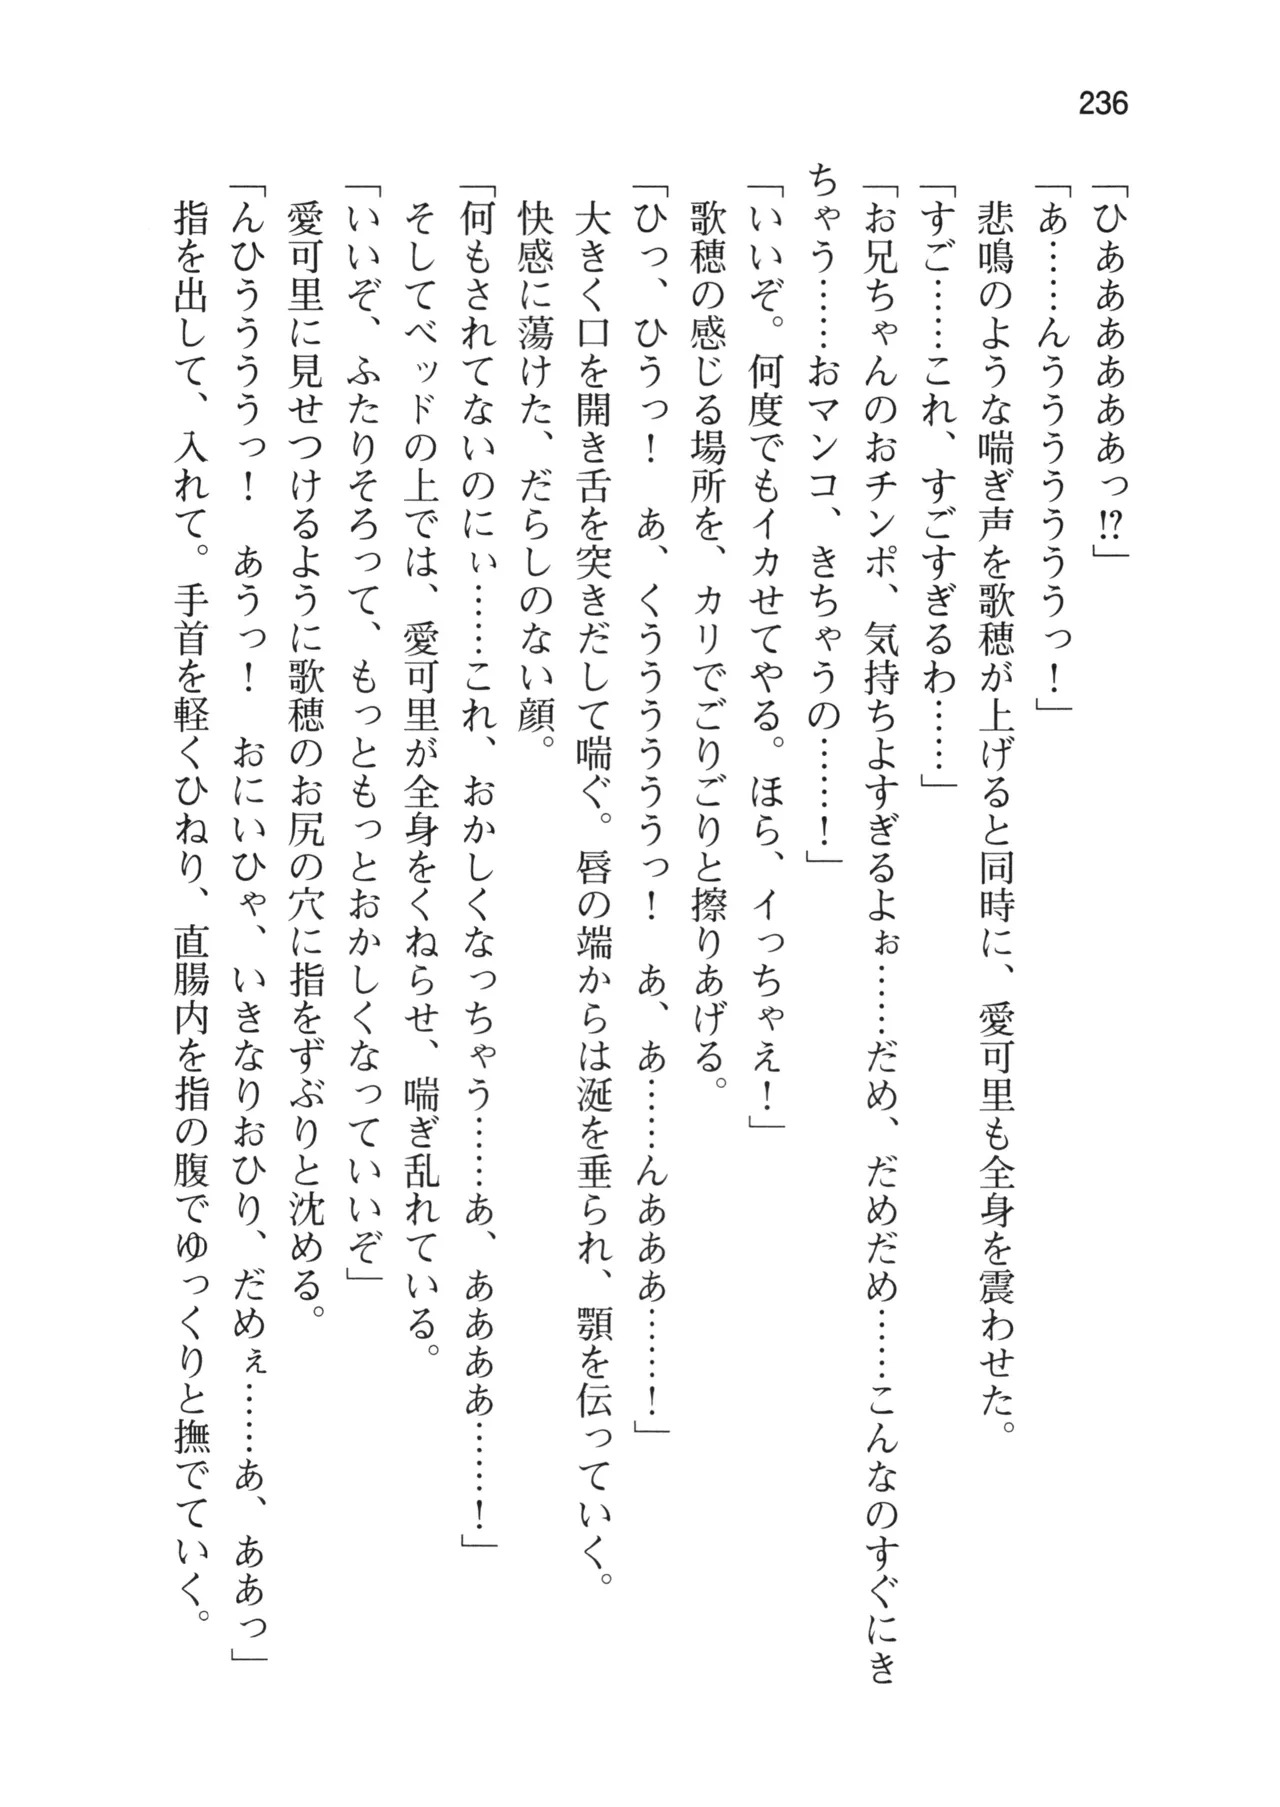 236
「ひああああああっ!?」
「あ……んううううううっ！」
悲鳴のような喘ぎ声を歌穂が上げると同時に、愛可里も全身を震わせた。
「すご……これ、すごすぎるわ……」
「お兄ちゃんのおチンポ、気持ちよすぎるよぉ……だめ、だめだめ……こんなのすぐにき
ちゃう……おマンコ、きちゃうの……！」
「いいぞ。何度でもイカせてやる。ほら、イっちゃえ！」
歌穂の感じる場所を、カリでごりごりと擦りあげる。
「ひっ、ひうっ！　あ、くうううううっ！　あ、あ……んあああ……！」
大きく口を開き舌を突きだして喘ぐ。唇の端からは涎を垂られ、顎を伝っていく。
快感に蕩けた、だらしのない顔。
「何もされてないのにぃ……これ、おかしくなっちゃう……あ、ああああ……！」
そしてベッドの上では、愛可里が全身をくねらせ、喘ぎ乱れている。
「いいぞ、ふたりそろって、もっともっとおかしくなっていいぞ」
愛可里に見せつけるように歌穂のお尻の穴に指をずぶりと沈める。
「んひうううっ！　あうっ！　おにいひゃ、いきなりおひり、だめぇ……あ、ああっ」
指を出して、入れて。手首を軽くひねり、直腸内を指の腹でゆっくりと撫でていく。